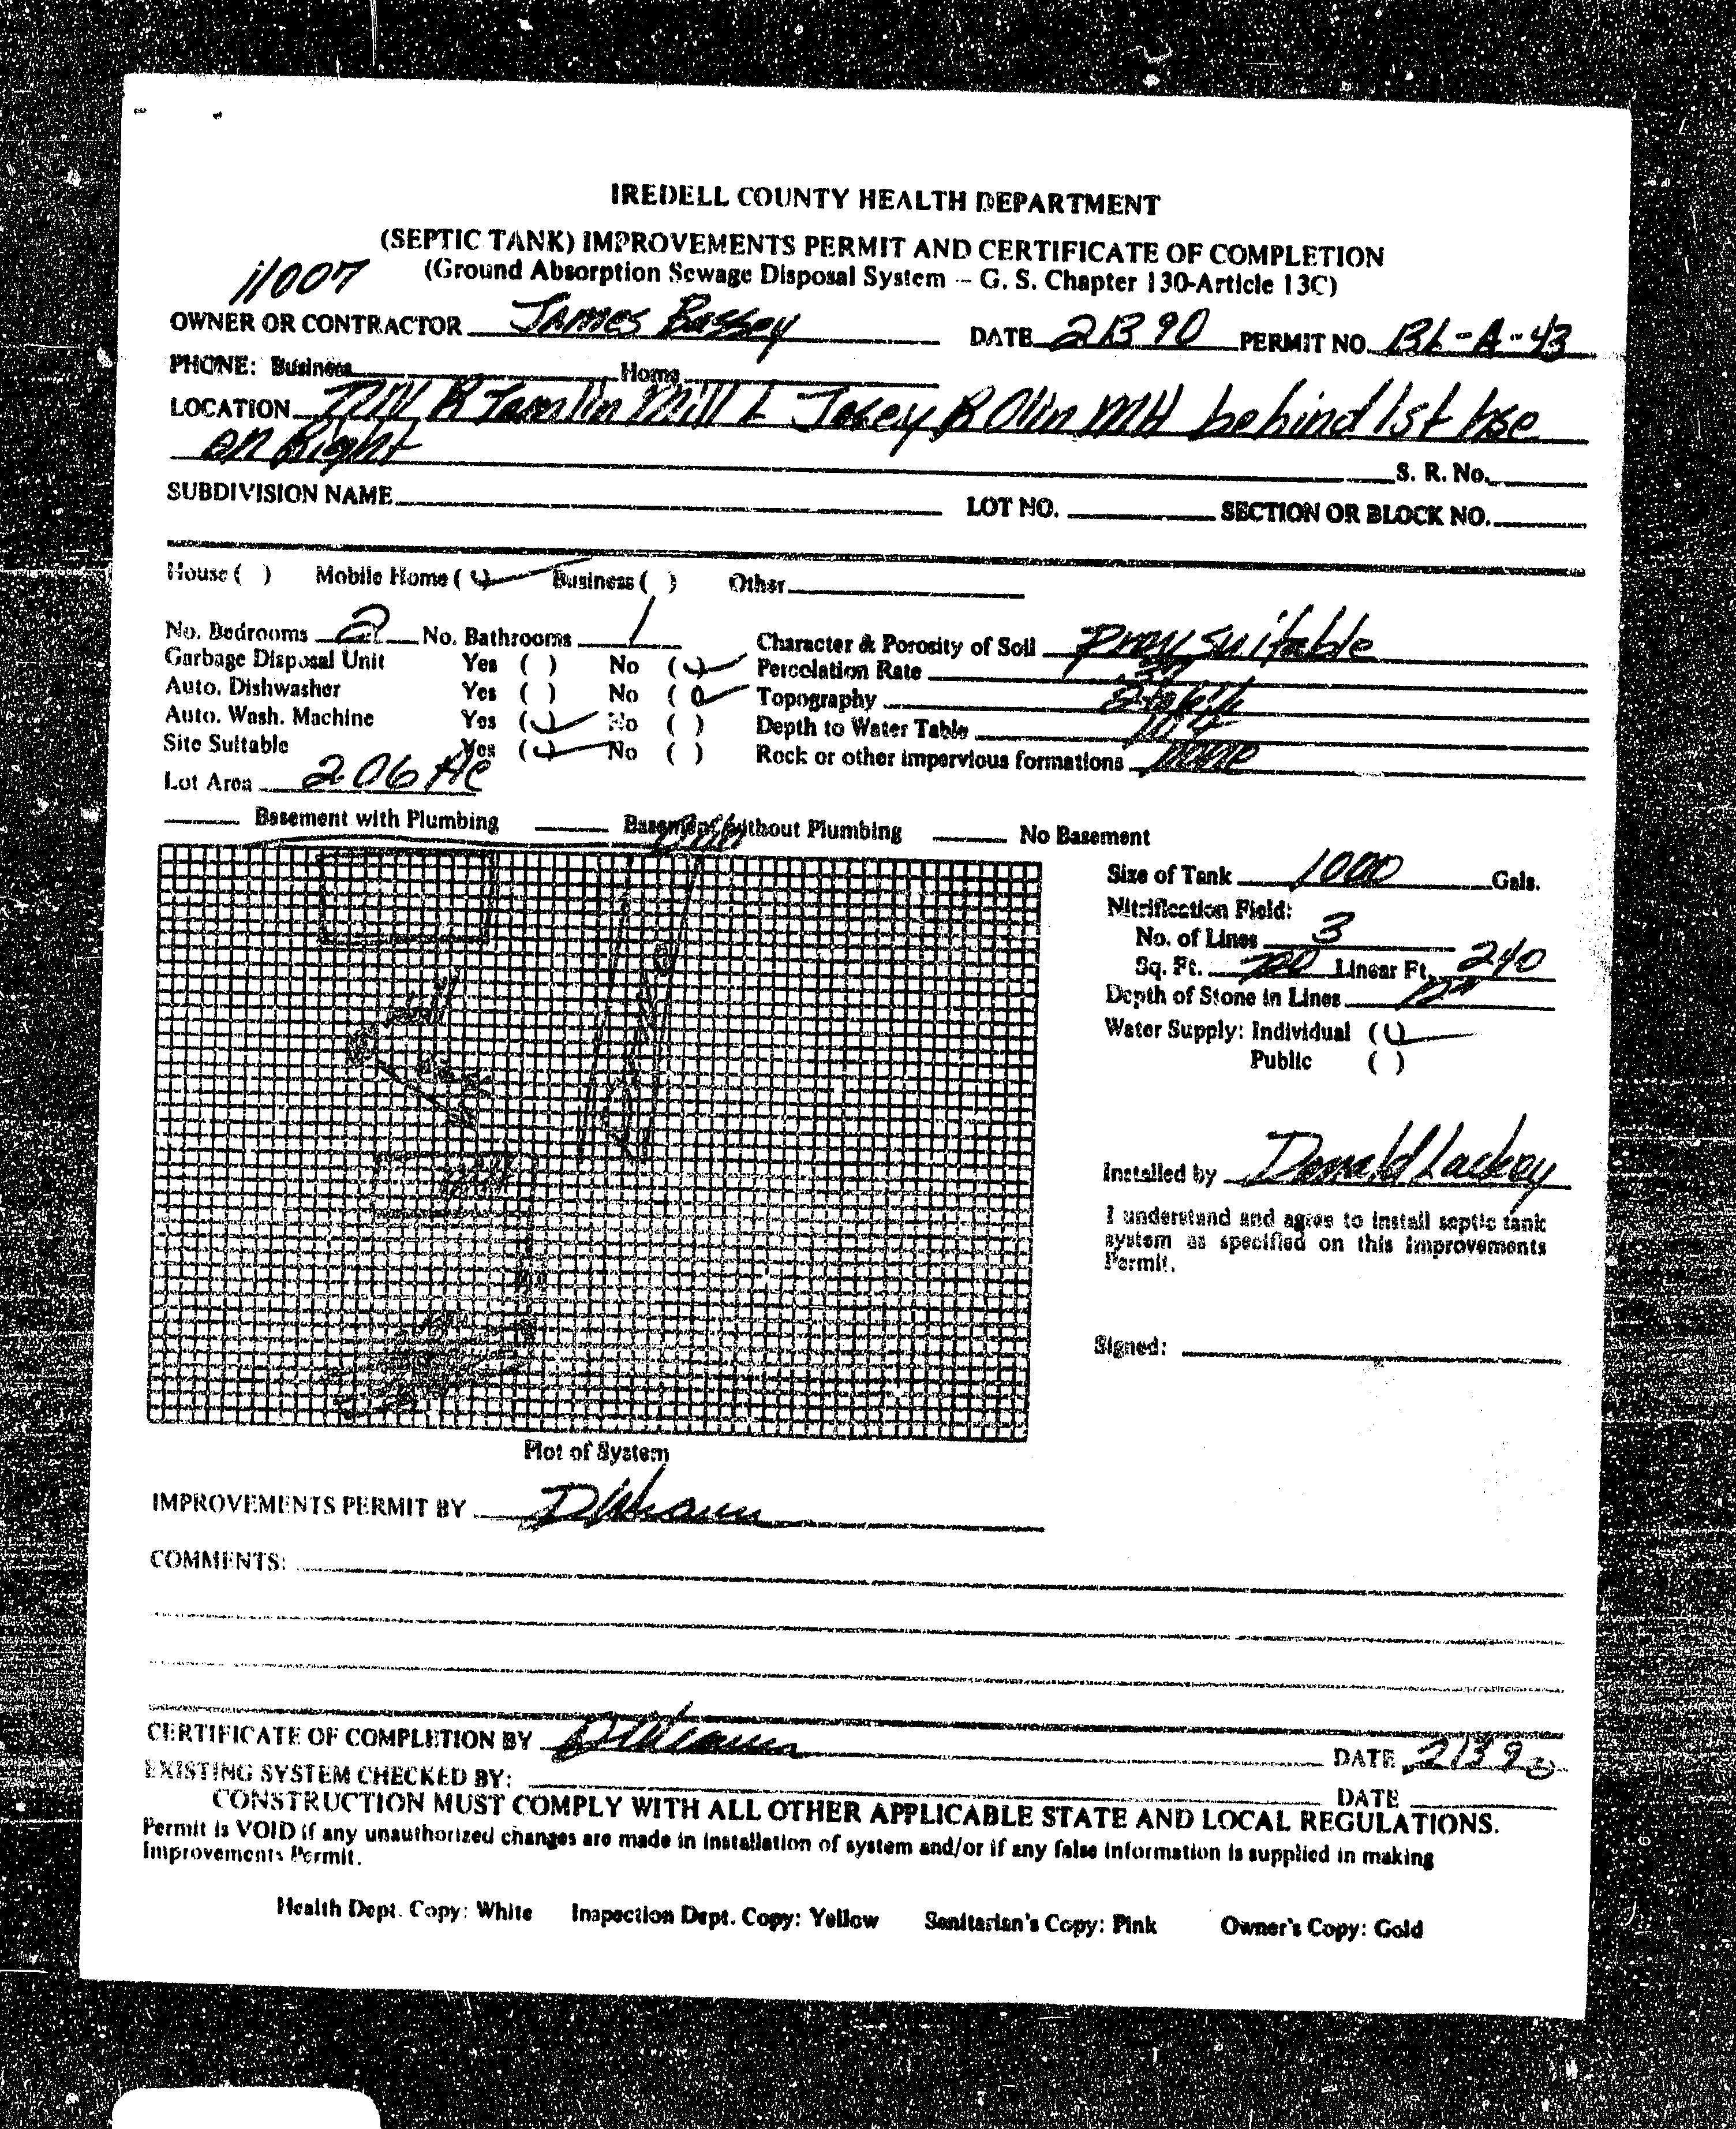 IREDELL COUNTY HEALTH DEPARTMENT
(SEPTIC TANK) IMPROVEMENTS PERMIT AND CERTIFICATE OF COMPLETION
11007 (Ground Absorption Sewage Disposal System -- G. S. Chapter 130-Article 13C)
OWNER OR CONTRACTOR James Bassey DATE 21390 PERMIT NO. BL-A-43
PHONE: Business Home
LOCATION R Tomlin Mill L Josey R Olin MH behind 1st hse
on Right
S. R. No.
SUBDIVISION NAME LOT NO. SECTION OR BLOCK NO.
House ( ) Mobile Home (✓) Business ( ) Other
No. Bedrooms 2 No. Bathrooms 1 Character & Porosity of Soil Prov suitable
Garbage Disposal Unit Yes ( ) No (✓) Percolation Rate
Auto. Dishwasher Yes ( ) No (✓) Topography
Auto. Wash. Machine Yes (✓) No ( ) Depth to Water Table
Site Suitable Yes (✓) No ( ) Rock or other impervious formations none
Lot Area 2.06 AC
Basement with Plumbing Basement without Plumbing No Basement
Size of Tank 1000 Gals.
Nitrification Field:
No. of Lines 3
Sq. Ft. 720 Linear Ft. 240
Depth of Stone in Lines 12"
Water Supply: Individual (✓)
Public ( )
Installed by Donald Lackey
I understand and agree to install septic tank
system as specified on this Improvements
Permit.
Signed:
Plot of System
IMPROVEMENTS PERMIT BY
COMMENTS:
CERTIFICATE OF COMPLETION BY DATE 21390
EXISTING SYSTEM CHECKED BY: DATE
CONSTRUCTION MUST COMPLY WITH ALL OTHER APPLICABLE STATE AND LOCAL REGULATIONS.
Permit is VOID if any unauthorized changes are made in installation of system and/or if any false information is supplied in making
Improvements Permit.
Health Dept. Copy: White Inspection Dept. Copy: Yellow Sanitarian's Copy: Pink Owner's Copy: Gold